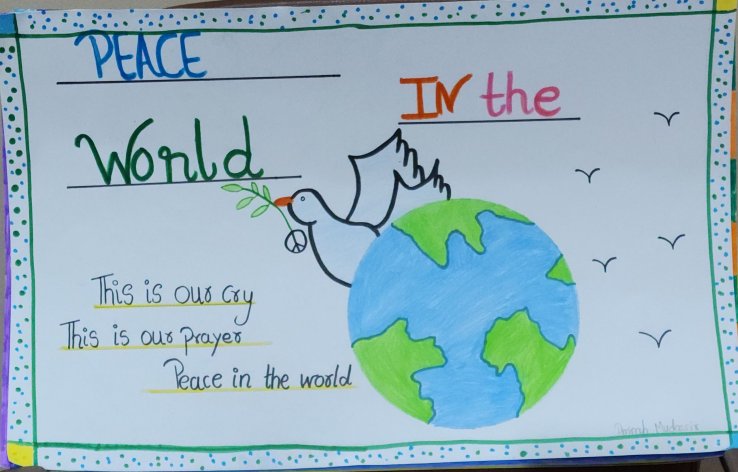 PEACE
IN the
World
This is our cry
This is our prayer
Peace in the world